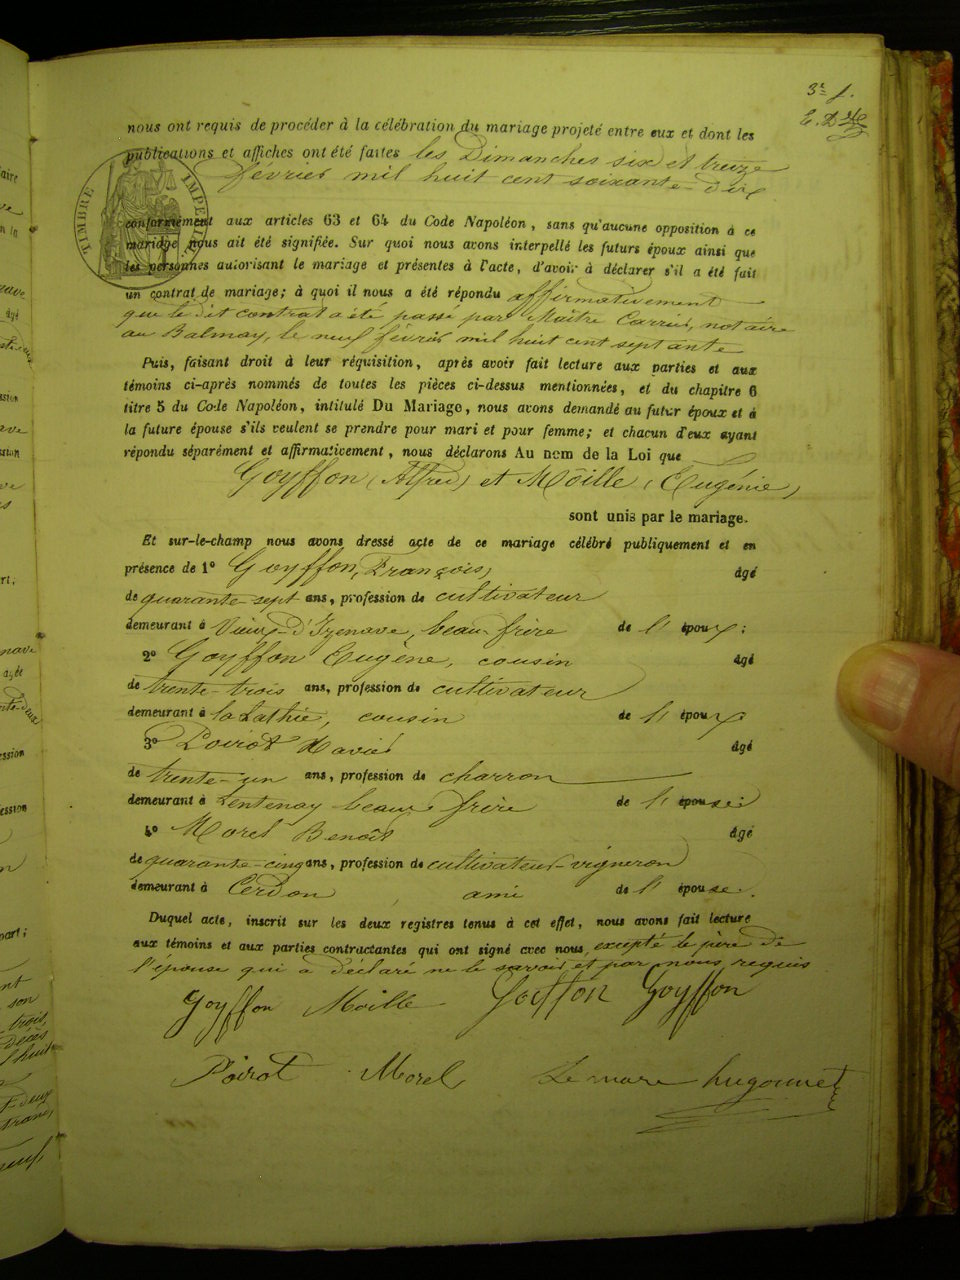 3e f.
nous ont requis de procéder à la célébration du mariage projeté entre eux et dont les
publications et affiches ont été faites les Dimanches six et treize
février mil huit cent soixante-dix
TIMBRE IMPERIAL
conformément aux articles 63 et 64 du Code Napoléon, sans qu'aucune opposition à ce
mariage nous ait été signifiée. Sur quoi nous avons interpellé les futurs époux ainsi que
les personnes autorisant le mariage et présentes à l'acte, d'avoir à déclarer s'il a été fait
un contrat de mariage; à quoi il nous a été répondu affirmativement
que le dit contrat a été passé par Maître Carrier, notaire
au Balmay, le neuf février mil huit cent septante
Puis, faisant droit à leur réquisition, après avoir fait lecture aux parties et aux
témoins ci-après nommés de toutes les pièces ci-dessus mentionnées, et du chapitre 6
titre 5 du Code Napoléon, intitulé Du Mariage, nous avons demandé au futur époux et à
la future épouse s'ils veulent se prendre pour mari et pour femme; et chacun d'eux ayant
répondu séparément et affirmativement, nous déclarons Au nom de la Loi que
Goyffon (Alfred) et Möille (Eugénie)
sont unis par le mariage.
Et sur-le-champ nous avons dressé acte de ce mariage célébré publiquement et en
présence de 1° Goyffon, François, âgé
de quarante-sept ans, profession de cultivateur
demeurant à Vieux-d'Izenave, beau-frère de l'époux;
2° Goyffon Eugène, cousin âgé
de trente-trois ans, profession de cultivateur
demeurant à la Lathie, cousin de l'époux
3° Poirot Xavier âgé
de trente-un ans, profession de charron
demeurant à Lentenay beau-frère de l'épouse;
4° Morel Benoît âgé
de quarante-cinq ans, profession de cultivateur-vigneron
demeurant à Cerdon, ami de l'épouse.
Duquel acte, inscrit sur les deux registres tenus à cet effet, nous avons fait lecture
aux témoins et aux parties contractantes qui ont signé avec nous, excepté le père de
l'épouse qui a déclaré ne le savoir, et par nous requis
Goyffon Moille Goiffon Goyffon
Poirot Morel Le maire hugonnet